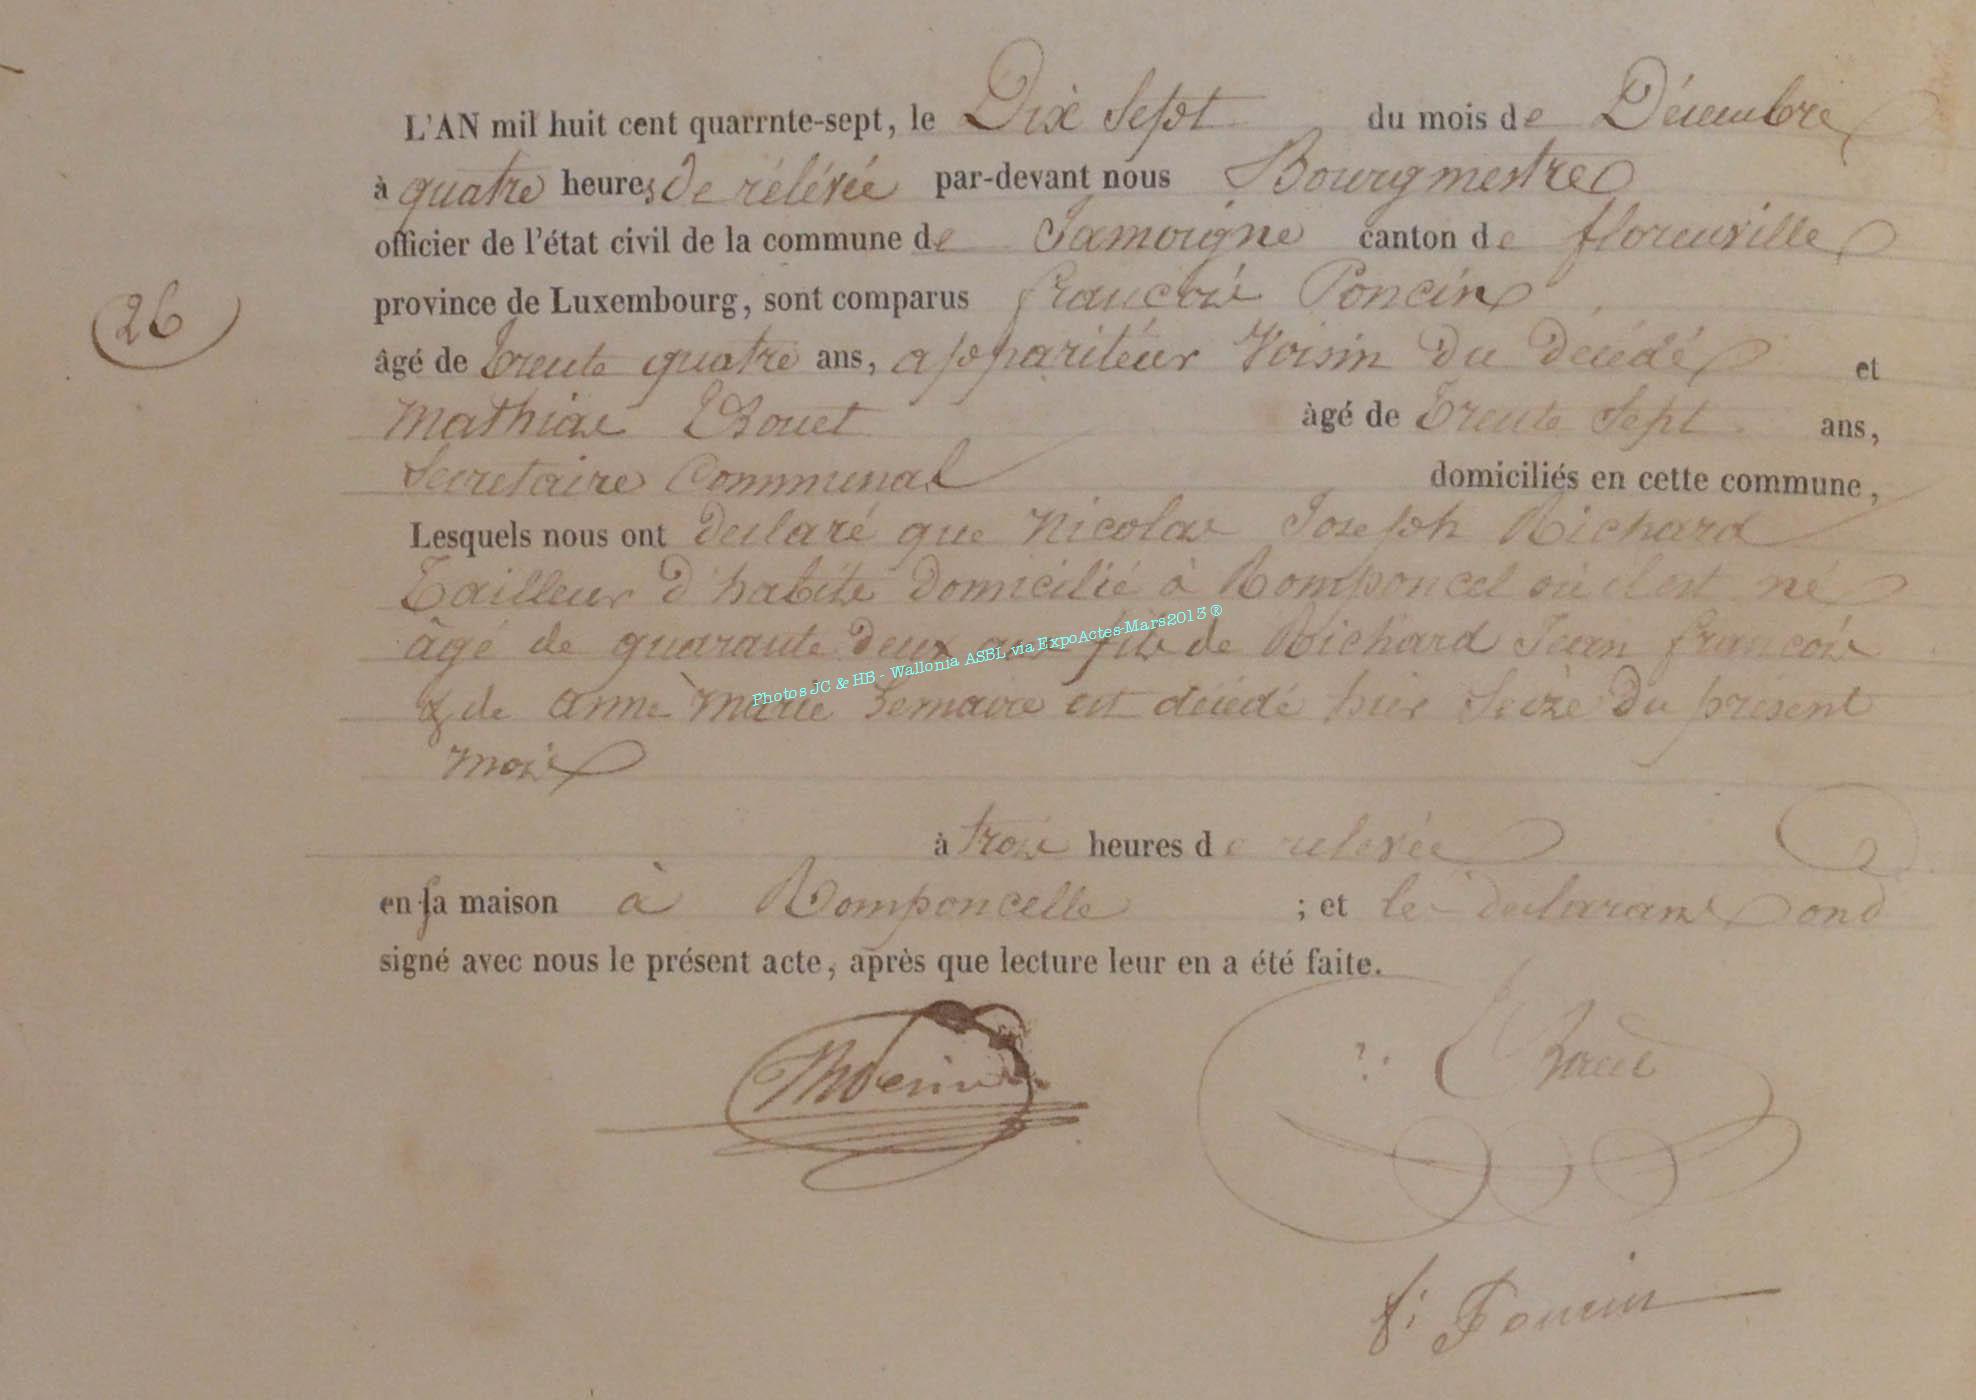 L'AN mil huit cent quarrnte-sept, le Dix Sept du mois de Décembre
à quatre heures de rélévée par-devant nous Bourgmestre
officier de l'état civil de la commune de Jamoigne canton de florenville
province de Luxembourg, sont comparus françois Poncin
26
âgé de Trente quatre ans, appariteur Voisin du décédé et
Mathias âgé de Trente Sept ans,
Secretaire Communal domiciliés en cette commune,
Lesquels nous ont declaré que Nicolas Joseph Richard
Tailleur d'habits domicilié à Romponcel où il est né
âgé de quarante deux ans fils de Richard Jean françois
& de anne Marie Lemaire est décédé hier Seize du présent
mois
Photos JC & HB - Wallonia ASBL via ExpoActes-Mars2013 ®
à trois heures de relevée
en sa maison à Romponcelle ; et les declarans ond
signé avec nous le présent acte, après que lecture leur en a été faite.
f: Poncin